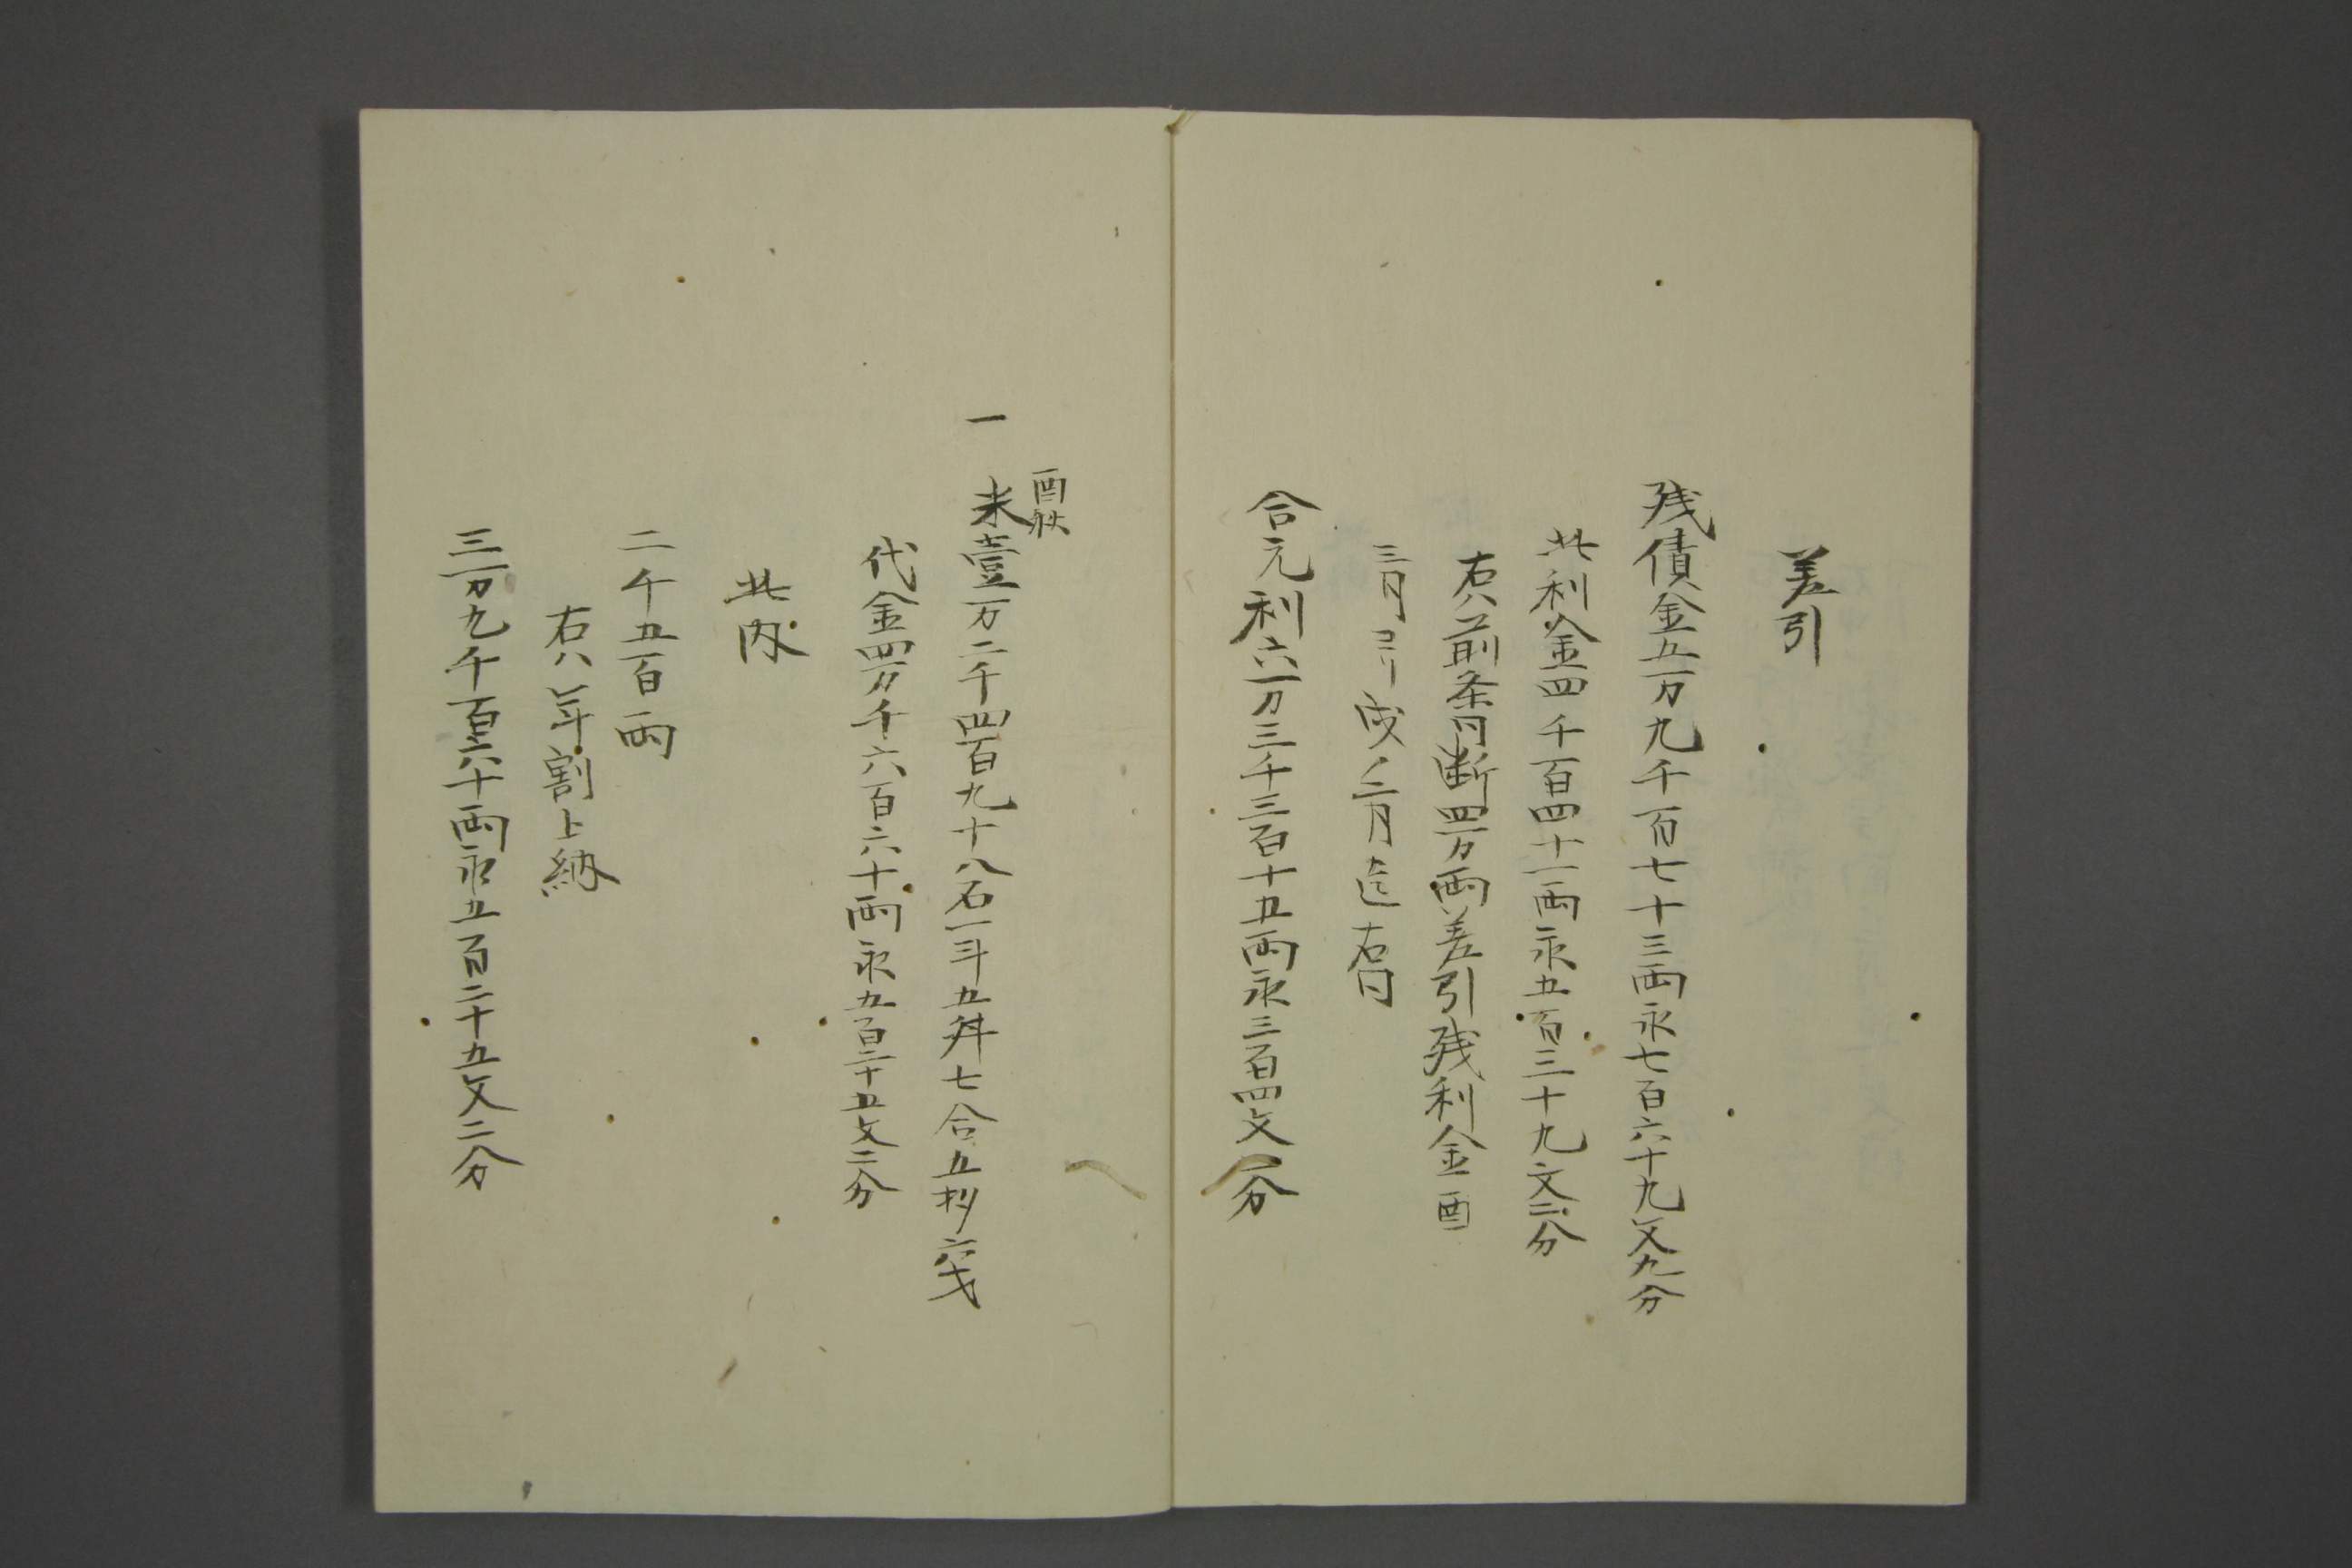 差引
残債金五万九千百七十三両永七百六十九文九分
此利金四千百四十一両永五百三十九文二分
右ハ前条同断四万両差引残利金酉
三月ヨリ戌ノ二月迄右同
合元利六万三千三百十五両永三百四文一分
酉秋
一 米壹万二千四百九十八石一斗五舛七合五抄六才
代金四万千六百六十両永五百二十五文二分
此内
二千五百両
右ハ年割上納
三万九千百六十両永五百二十五文二分